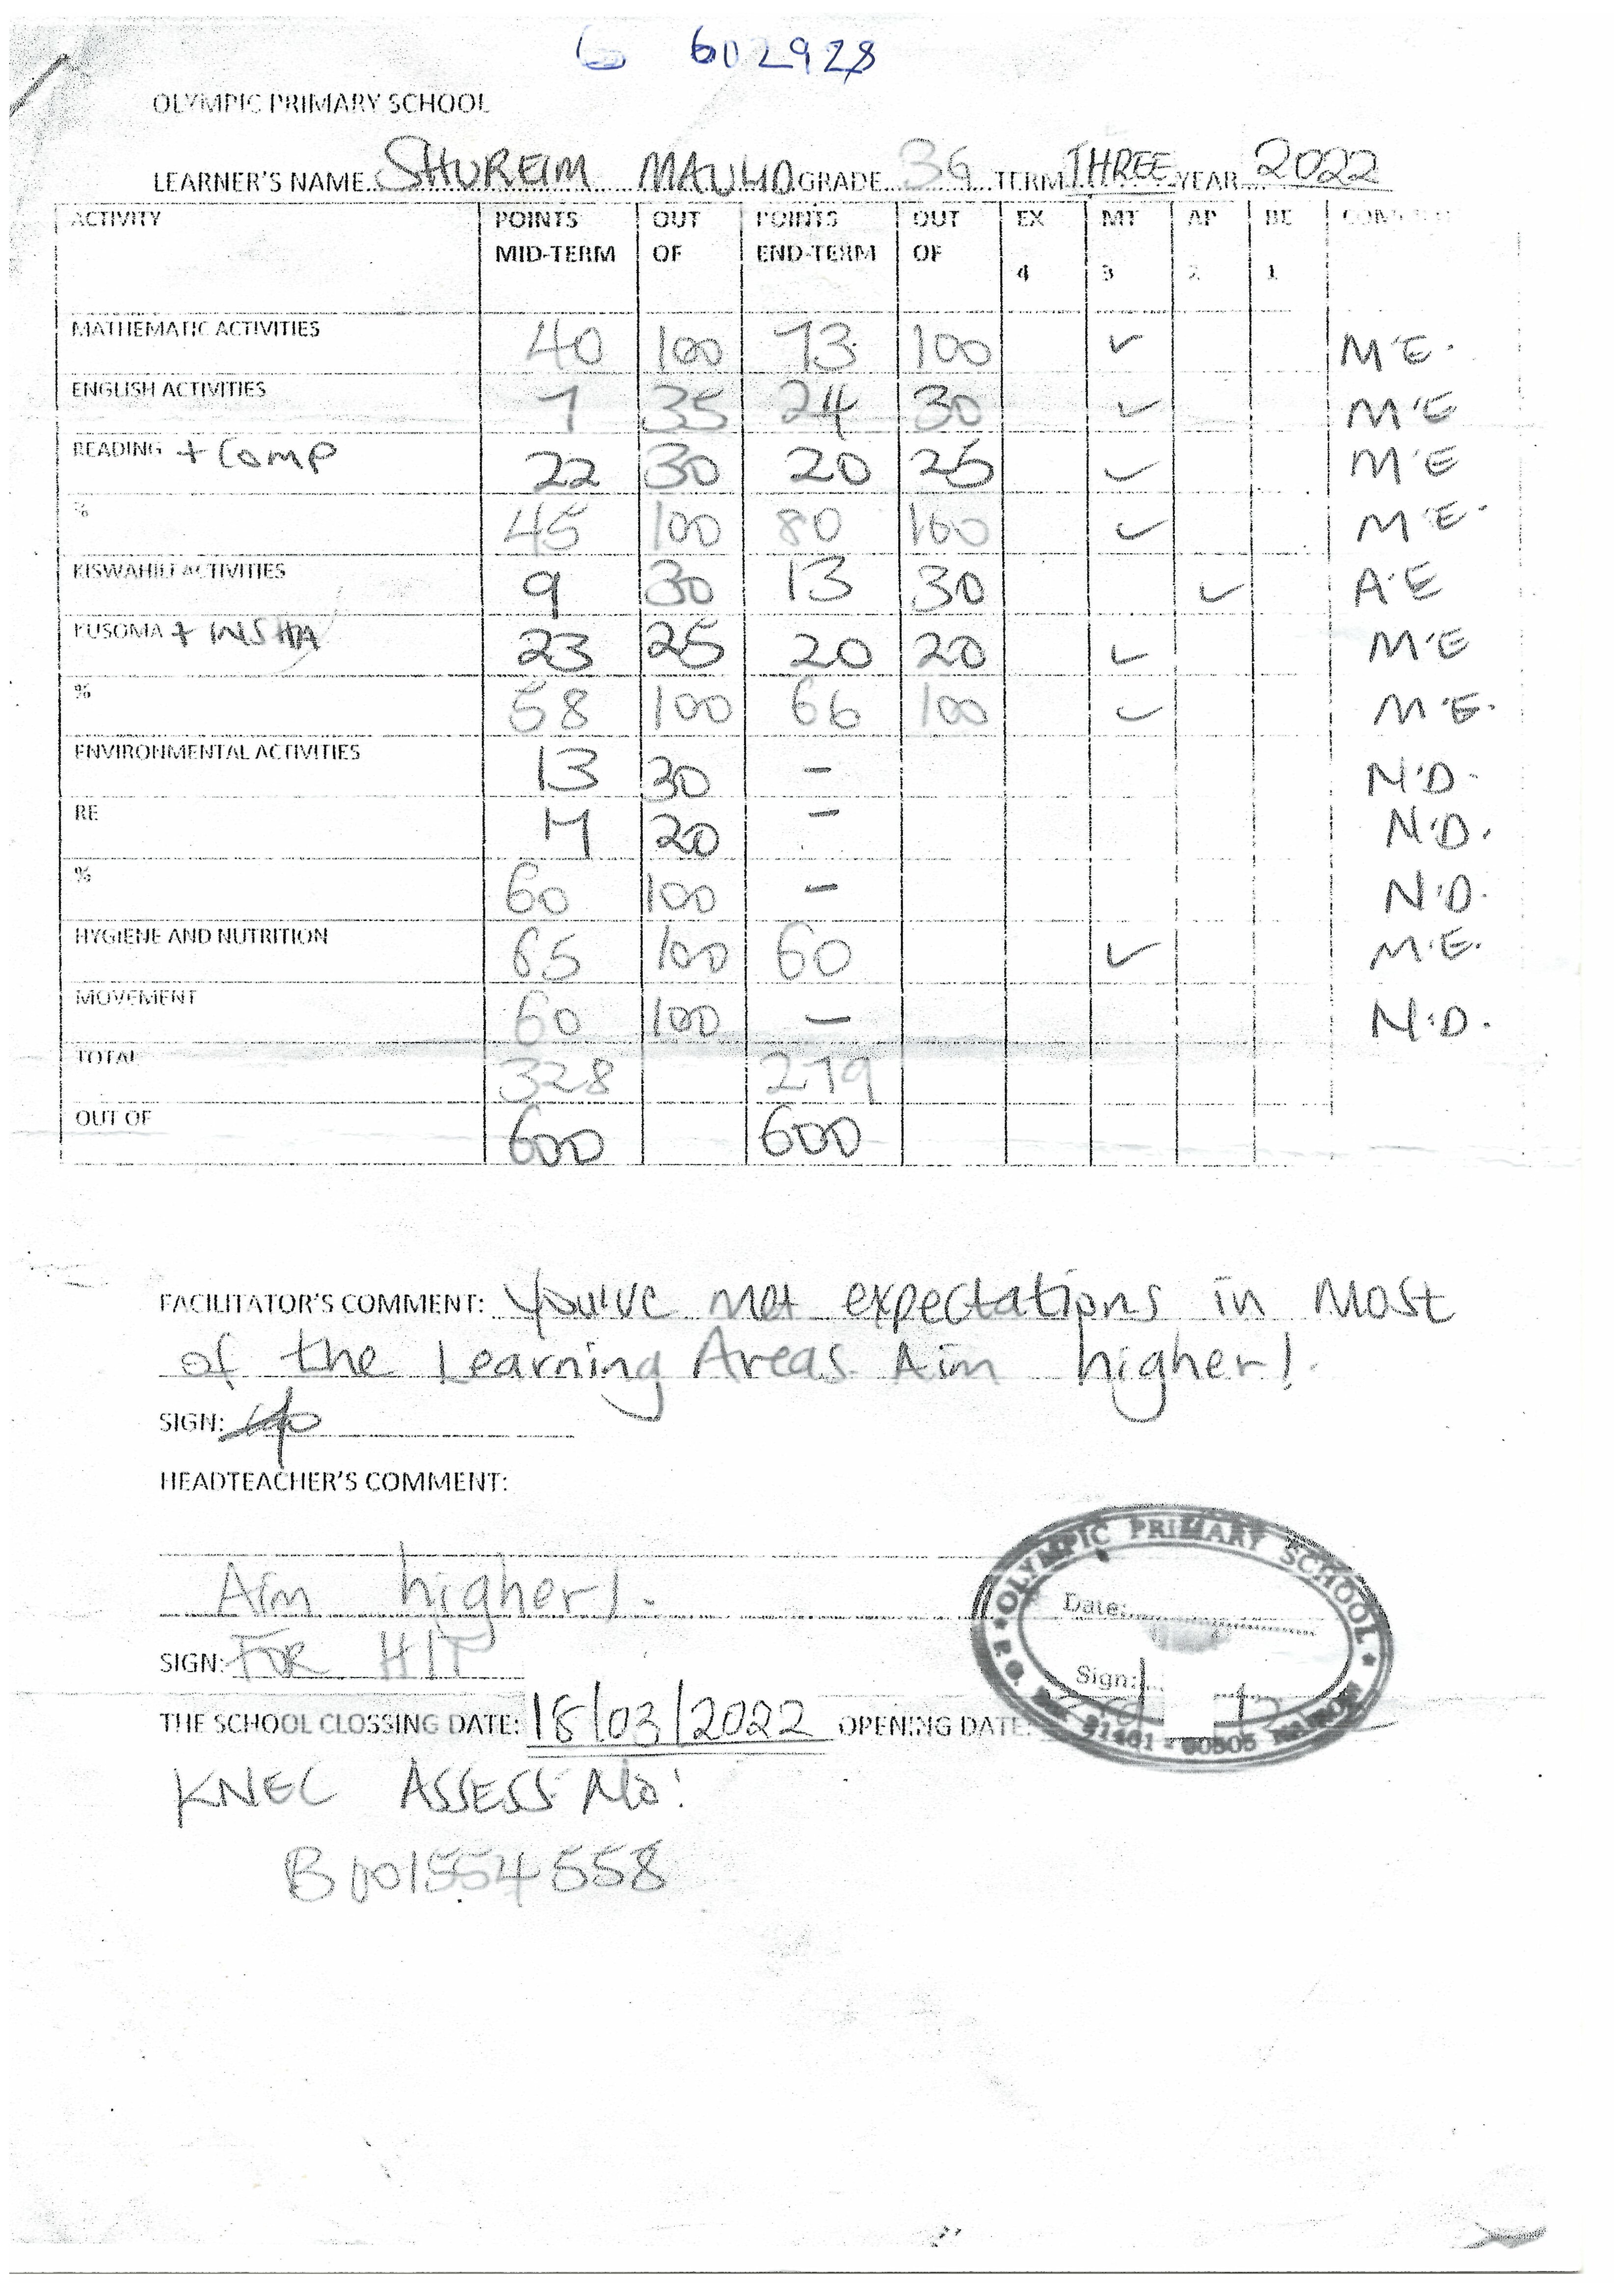 6 602928
OLYMPIC PRIMARY SCHOOL
LEARNER'S NAME SHUREIM MAULID GRADE 3G TERM THREE YEAR 2022
ACTIVITY POINTS MID-TERM OUT OF POINTS END-TERM OUT OF EX 4 MT 3 AP 2 BE 1
MATHEMATIC ACTIVITIES 40 100 73 100 ✓ M'E.
ENGLISH ACTIVITIES 7 35 24 30 ✓ M'E
READING + Comp 22 30 20 25 ✓ M'E
% 45 100 80 100 ✓ M'E.
KISWAHILI ACTIVITIES 9 30 13 30 ✓ A'E
KUSOMA + INSHA 23 25 20 20 ✓ M'E
% 58 100 66 100 ✓ M'E.
ENVIRONMENTAL ACTIVITIES 13 30 - N'D.
RE 17 20 - N'D.
% 60 100 - N'D.
HYGIENE AND NUTRITION 65 100 60 ✓ M.E.
MOVEMENT 60 100 - N.D.
TOTAL 328 279
OUT OF 600 600
FACILITATOR'S COMMENT: You've met expectations in Most
of the Learning Areas. Aim higher!.
SIGN:
HEADTEACHER'S COMMENT:
Aim higher!.
SIGN: FOR H/T
OLYMPIC PRIMARY SCHOOL
Date:
Sign:
THE SCHOOL CLOSSING DATE: 18/03/2022 OPENING DATE:
KNEC ASSESS No:
B001554558